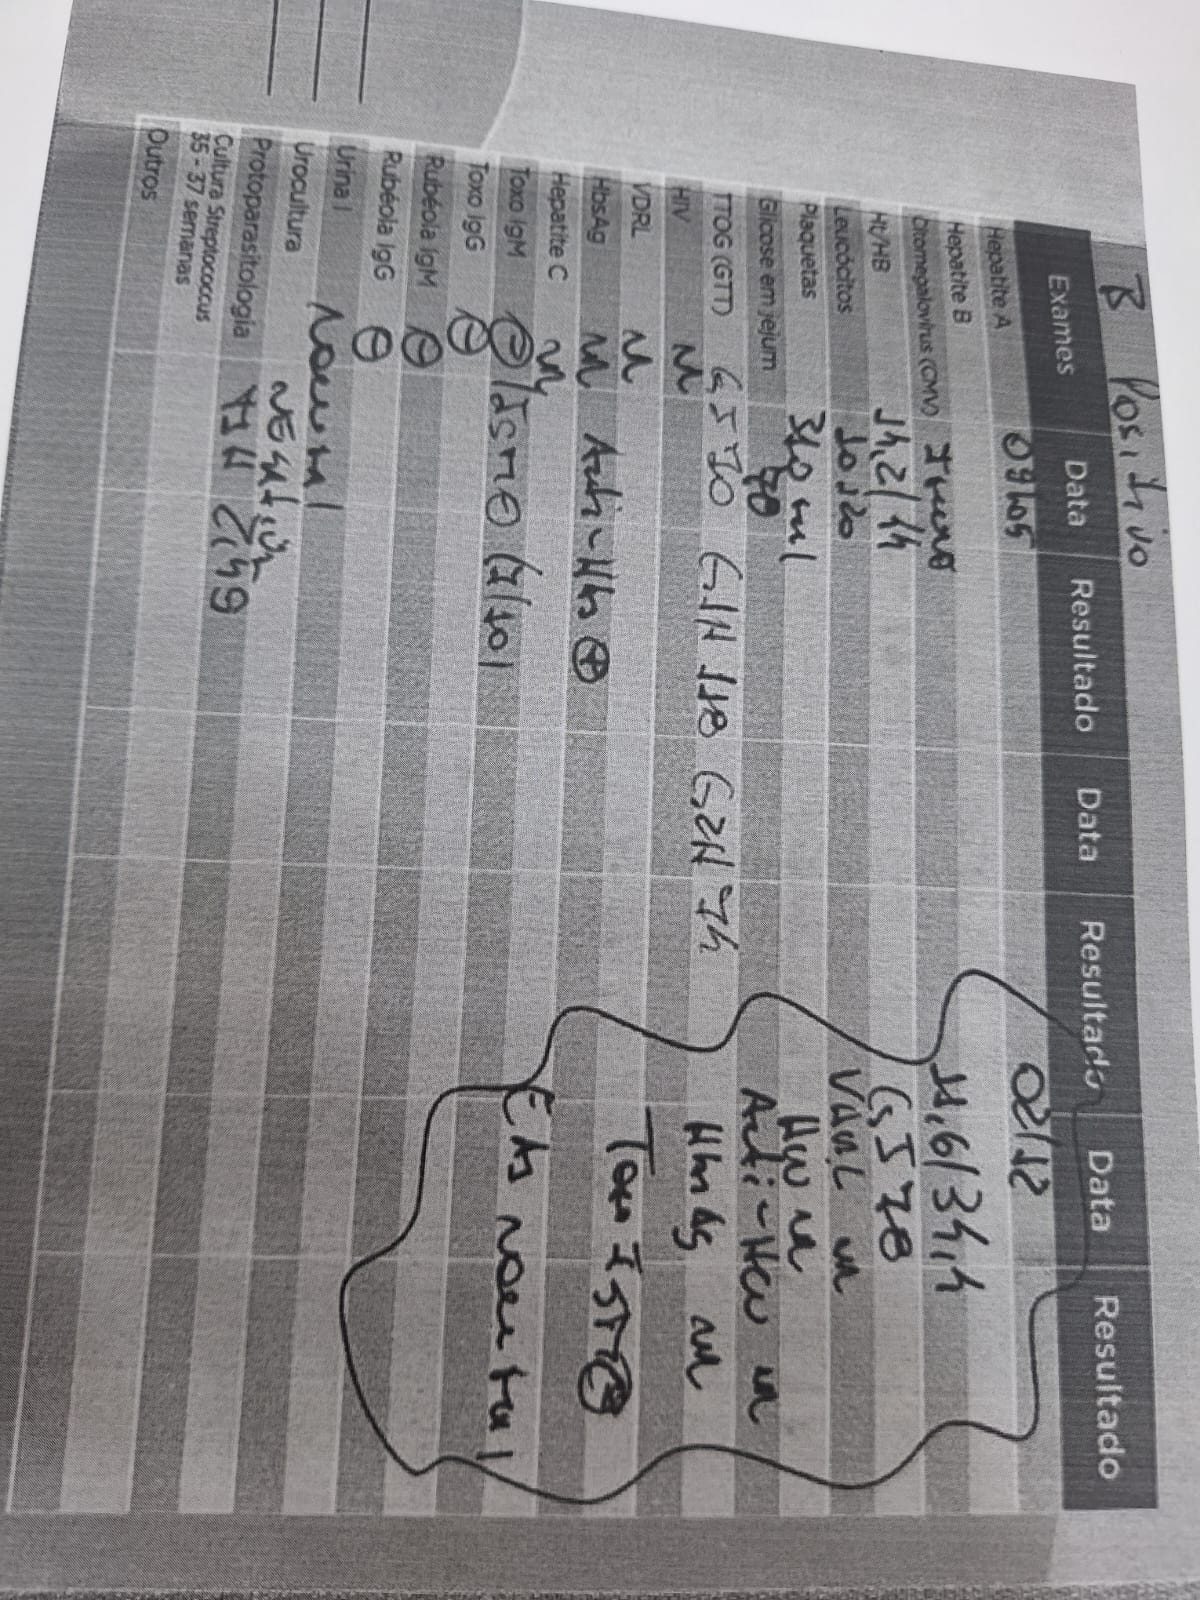 B Positivo
Exames Data Resultado Data Resultado Data Resultado
09/05
02/12
Hepatite A
Hepatite B
Citomegalovírus (CMV) Imune
11,6/34,4
Ht/HB 14,2/44
GJ 78
Leucócitos 10120
VDRL nr
Plaquetas 340 mil
HIV nr
Glicose em jejum 90
Anti-HCV nr
TTOG (GTT) GJ 70 G1H 118 G2H 74
HIV nr
HbsAg nr
VDRL nr
Toxo IgG
HbsAg nr Anti-Hbs ⊕
Hepatite C nr
EAS normal
Toxo IgM ⊖
Toxo IgG ⊖
Rubéola IgM ⊖
Rubéola IgG ⊖
Urina I normal
Urocultura negativa
Protoparasitologia TSH 2,49
Cultura Streptococcus
35 - 37 semanas
Outros